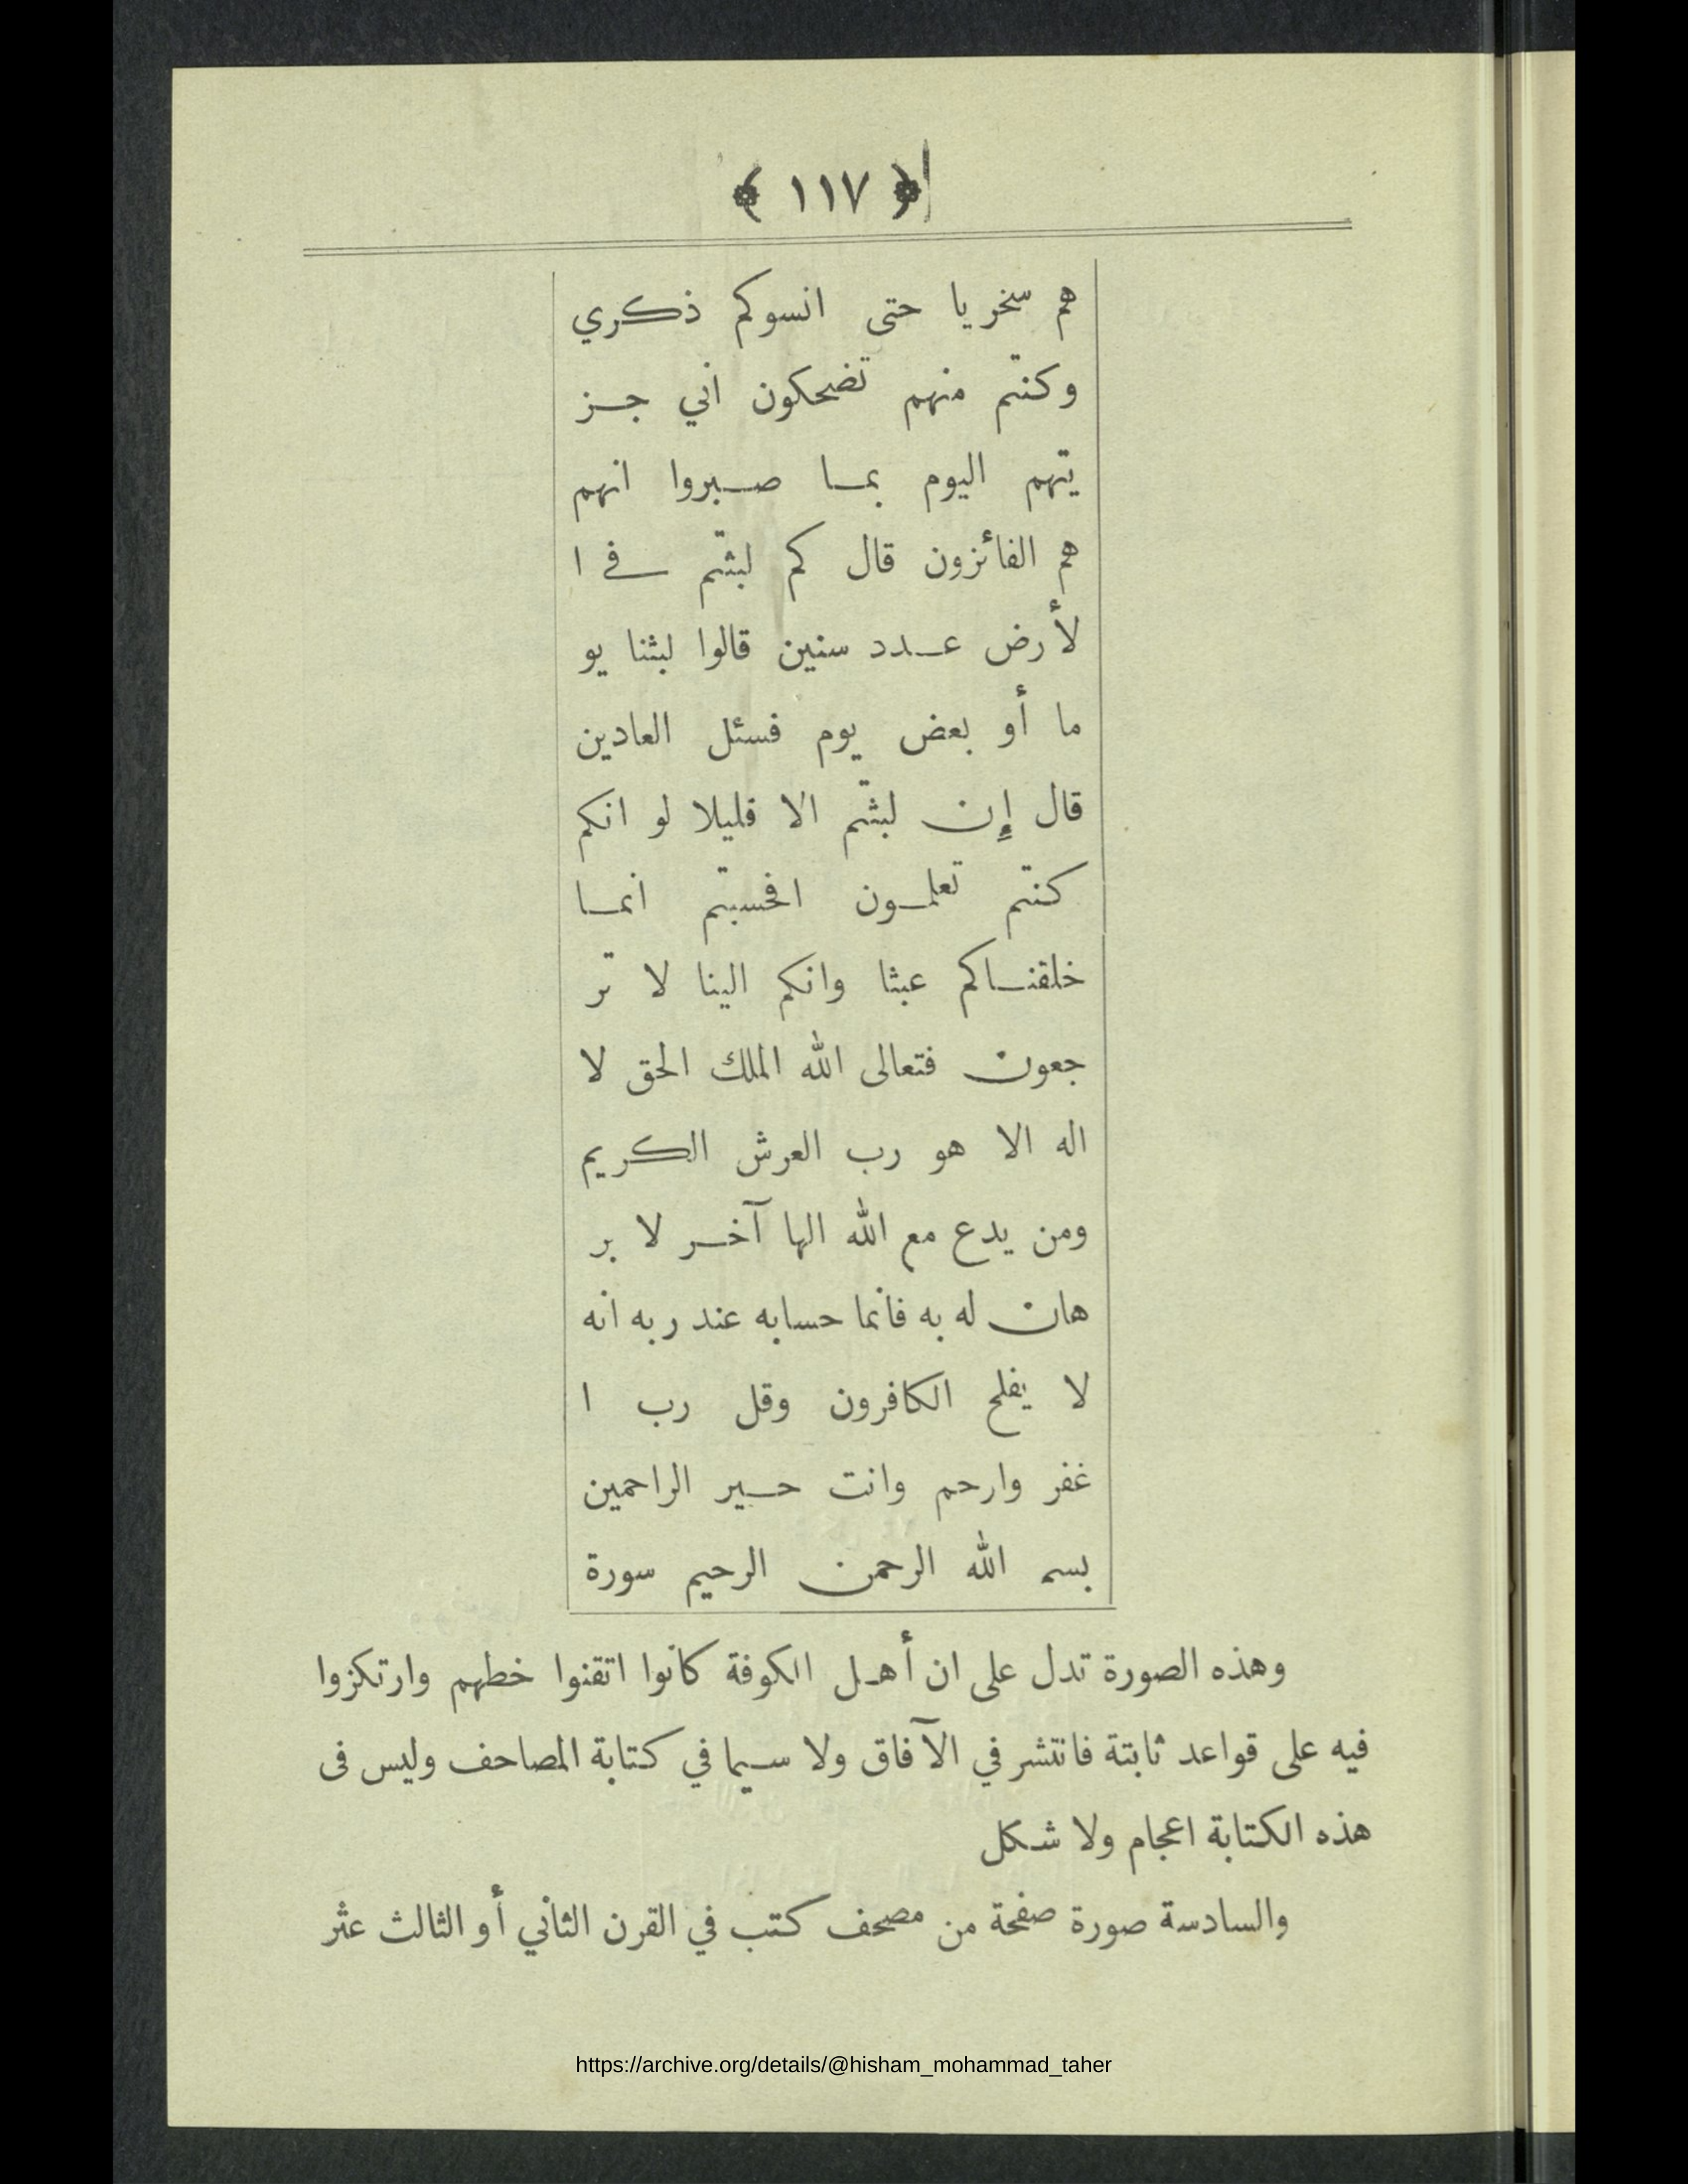 ﴿ ١١٧ ﴾
هم سخريا حتى انسوكم ذكري
وكنتم منهم تضحكون اني جز
يتهم اليوم بما صبروا انهم
هم الفائزون قال كم لبثتم في ا
لأرض عدد سنين قالوا لبثنا يو
ما أو بعض يوم فسئل العادين
قال إن لبثتم الا قليلا لو انكم
كنتم تعلمون افحسبتم انما
خلقناكم عبثا وانكم الينا لا تر
جعون فتعالى الله الملك الحق لا
اله الا هو رب العرش الكريم
ومن يدع مع الله الها آخر لا بر
هان له به فانما حسابه عند ربه انه
لا يفلح الكافرون وقل رب ا
غفر وارحم وانت خير الراحمين
بسم الله الرحمن الرحيم سورة
وهذه الصورة تدل على ان أهل الكوفة كانوا اتقنوا خطهم وارتكزوا
فيه على قواعد ثابتة فانتشر في الآفاق ولا سيما في كتابة المصاحف وليس فى
هذه الكتابة اعجام ولا شكل
والسادسة صورة صفحة من مصحف كتب في القرن الثاني أو الثالث عثر
https://archive.org/details/@hisham_mohammad_taher